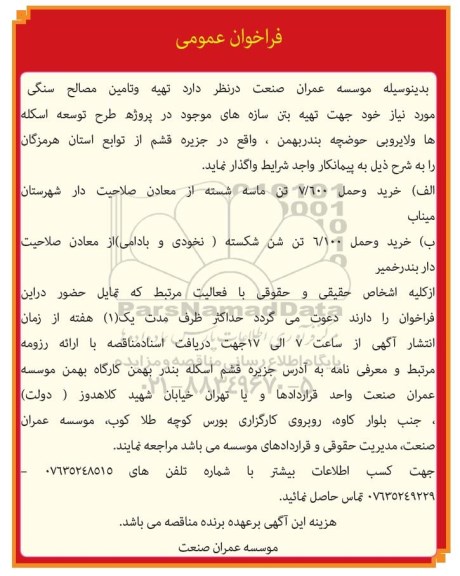 فراخوان عمومی
بدینوسیله موسسه عمران صنعت درنظر دارد تهیه وتامین مصالح سنگی
مورد نیاز خود جهت تهیه بتن سازه های موجود در پروژه طرح توسعه اسکله
ها ولایروبی حوضچه بندربهمن ، واقع در جزیره قشم از توابع استان هرمزگان
را به شرح ذیل به پیمانکار واجد شرایط واگذار نماید.
الف) خرید وحمل ۷/۶۰۰ تن ماسه شسته از معادن صلاحیت دار شهرستان
میناب
ب) خرید وحمل ۶/۱۰۰ تن شن شکسته ( نخودی و بادامی)از معادن صلاحیت
دار بندرخمیر
ازکلیه اشخاص حقیقی و حقوقی با فعالیت مرتبط که تمایل حضور دراین
فراخوان را دارند دعوت می گردد حداکثر ظرف مدت یک(۱) هفته از زمان
انتشار آگهی از ساعت ۷ الی ۱۷جهت دریافت اسنادمناقصه با ارائه رزومه
مرتبط و معرفی نامه به آدرس جزیره قشم اسکله بندر بهمن کارگاه بهمن موسسه
عمران صنعت واحد قراردادها و یا تهران خیابان شهید کلاهدوز ( دولت)
، جنب بلوار کاوه، روبروی کارگزاری بورس کوچه طلا کوب، موسسه عمران
صنعت، مدیریت حقوقی و قراردادهای موسسه می باشد مراجعه نمایند.
جهت کسب اطلاعات بیشتر با شماره تلفن های ۰۷۶۳۵۲۴۸۵۱۵ -
۰۷۶۳۵۲۴۹۲۲۹ تماس حاصل نمائید.
هزینه این آگهی برعهده برنده مناقصه می باشد.
موسسه عمران صنعت
ParsNamadData
پایگاه اطلاع رسانی مناقصه و مزایده
۰۲۱-۸۸۳۴۹۶۷۰-۵